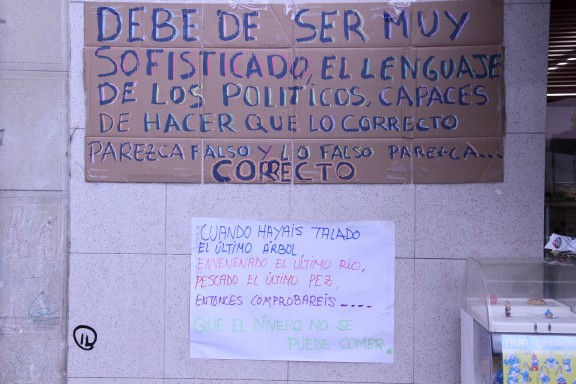 DEBE DE SER MUY
SOFISTICADO, EL LENGUAJE
DE LOS POLITICOS, CAPACES
DE HACER QUE LO CORRECTO
PAREZCA FALSO Y LO FALSO PAREZCA...
CORRECTO
CUANDO HAYAIS TALADO
EL ÚLTIMO ÁRBOL
ENVENENADO EL ÚLTIMO RIO,
PESCADO EL ÚLTIMO PEZ,
ENTONCES COMPROBAREIS ----
QUE EL DINERO NO SE
PUEDE COMER.